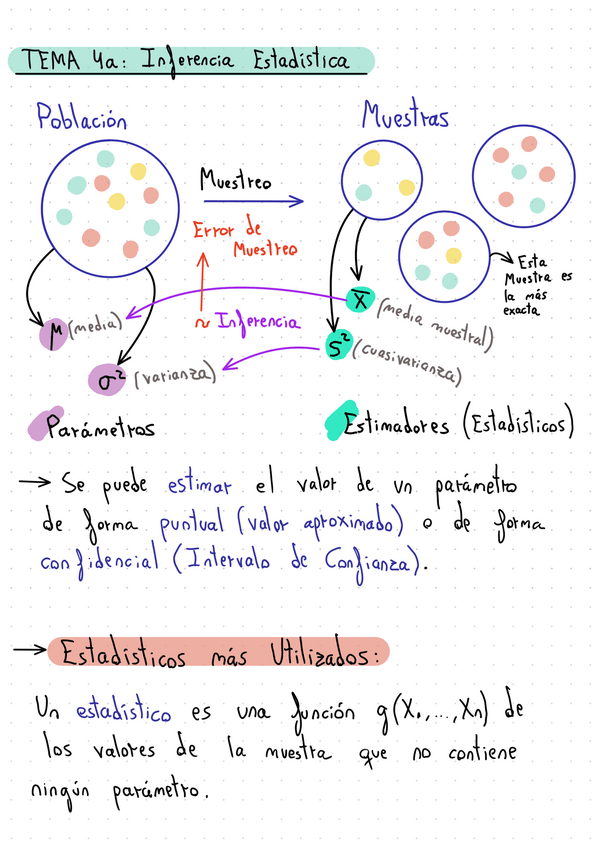 TEMA 4a: Inferencia Estadística
Población
Muestras
Muestreo
Error de
Muestreo
~ Inferencia
Esta
Muestra es
la más
exacta
μ (media)
σ² (varianza)
X̄ (media muestral)
S² (cuasivarianza)
Parámetros
Estimadores (Estadísticos)
→ Se puede estimar el valor de un parámetro
de forma puntual (valor aproximado) o de forma
confidencial (Intervalo de Confianza).
→ Estadísticos más Utilizados:
Un estadístico es una función g(X₁,...,Xn) de
los valores de la muestra que no contiene
ningún parámetro.